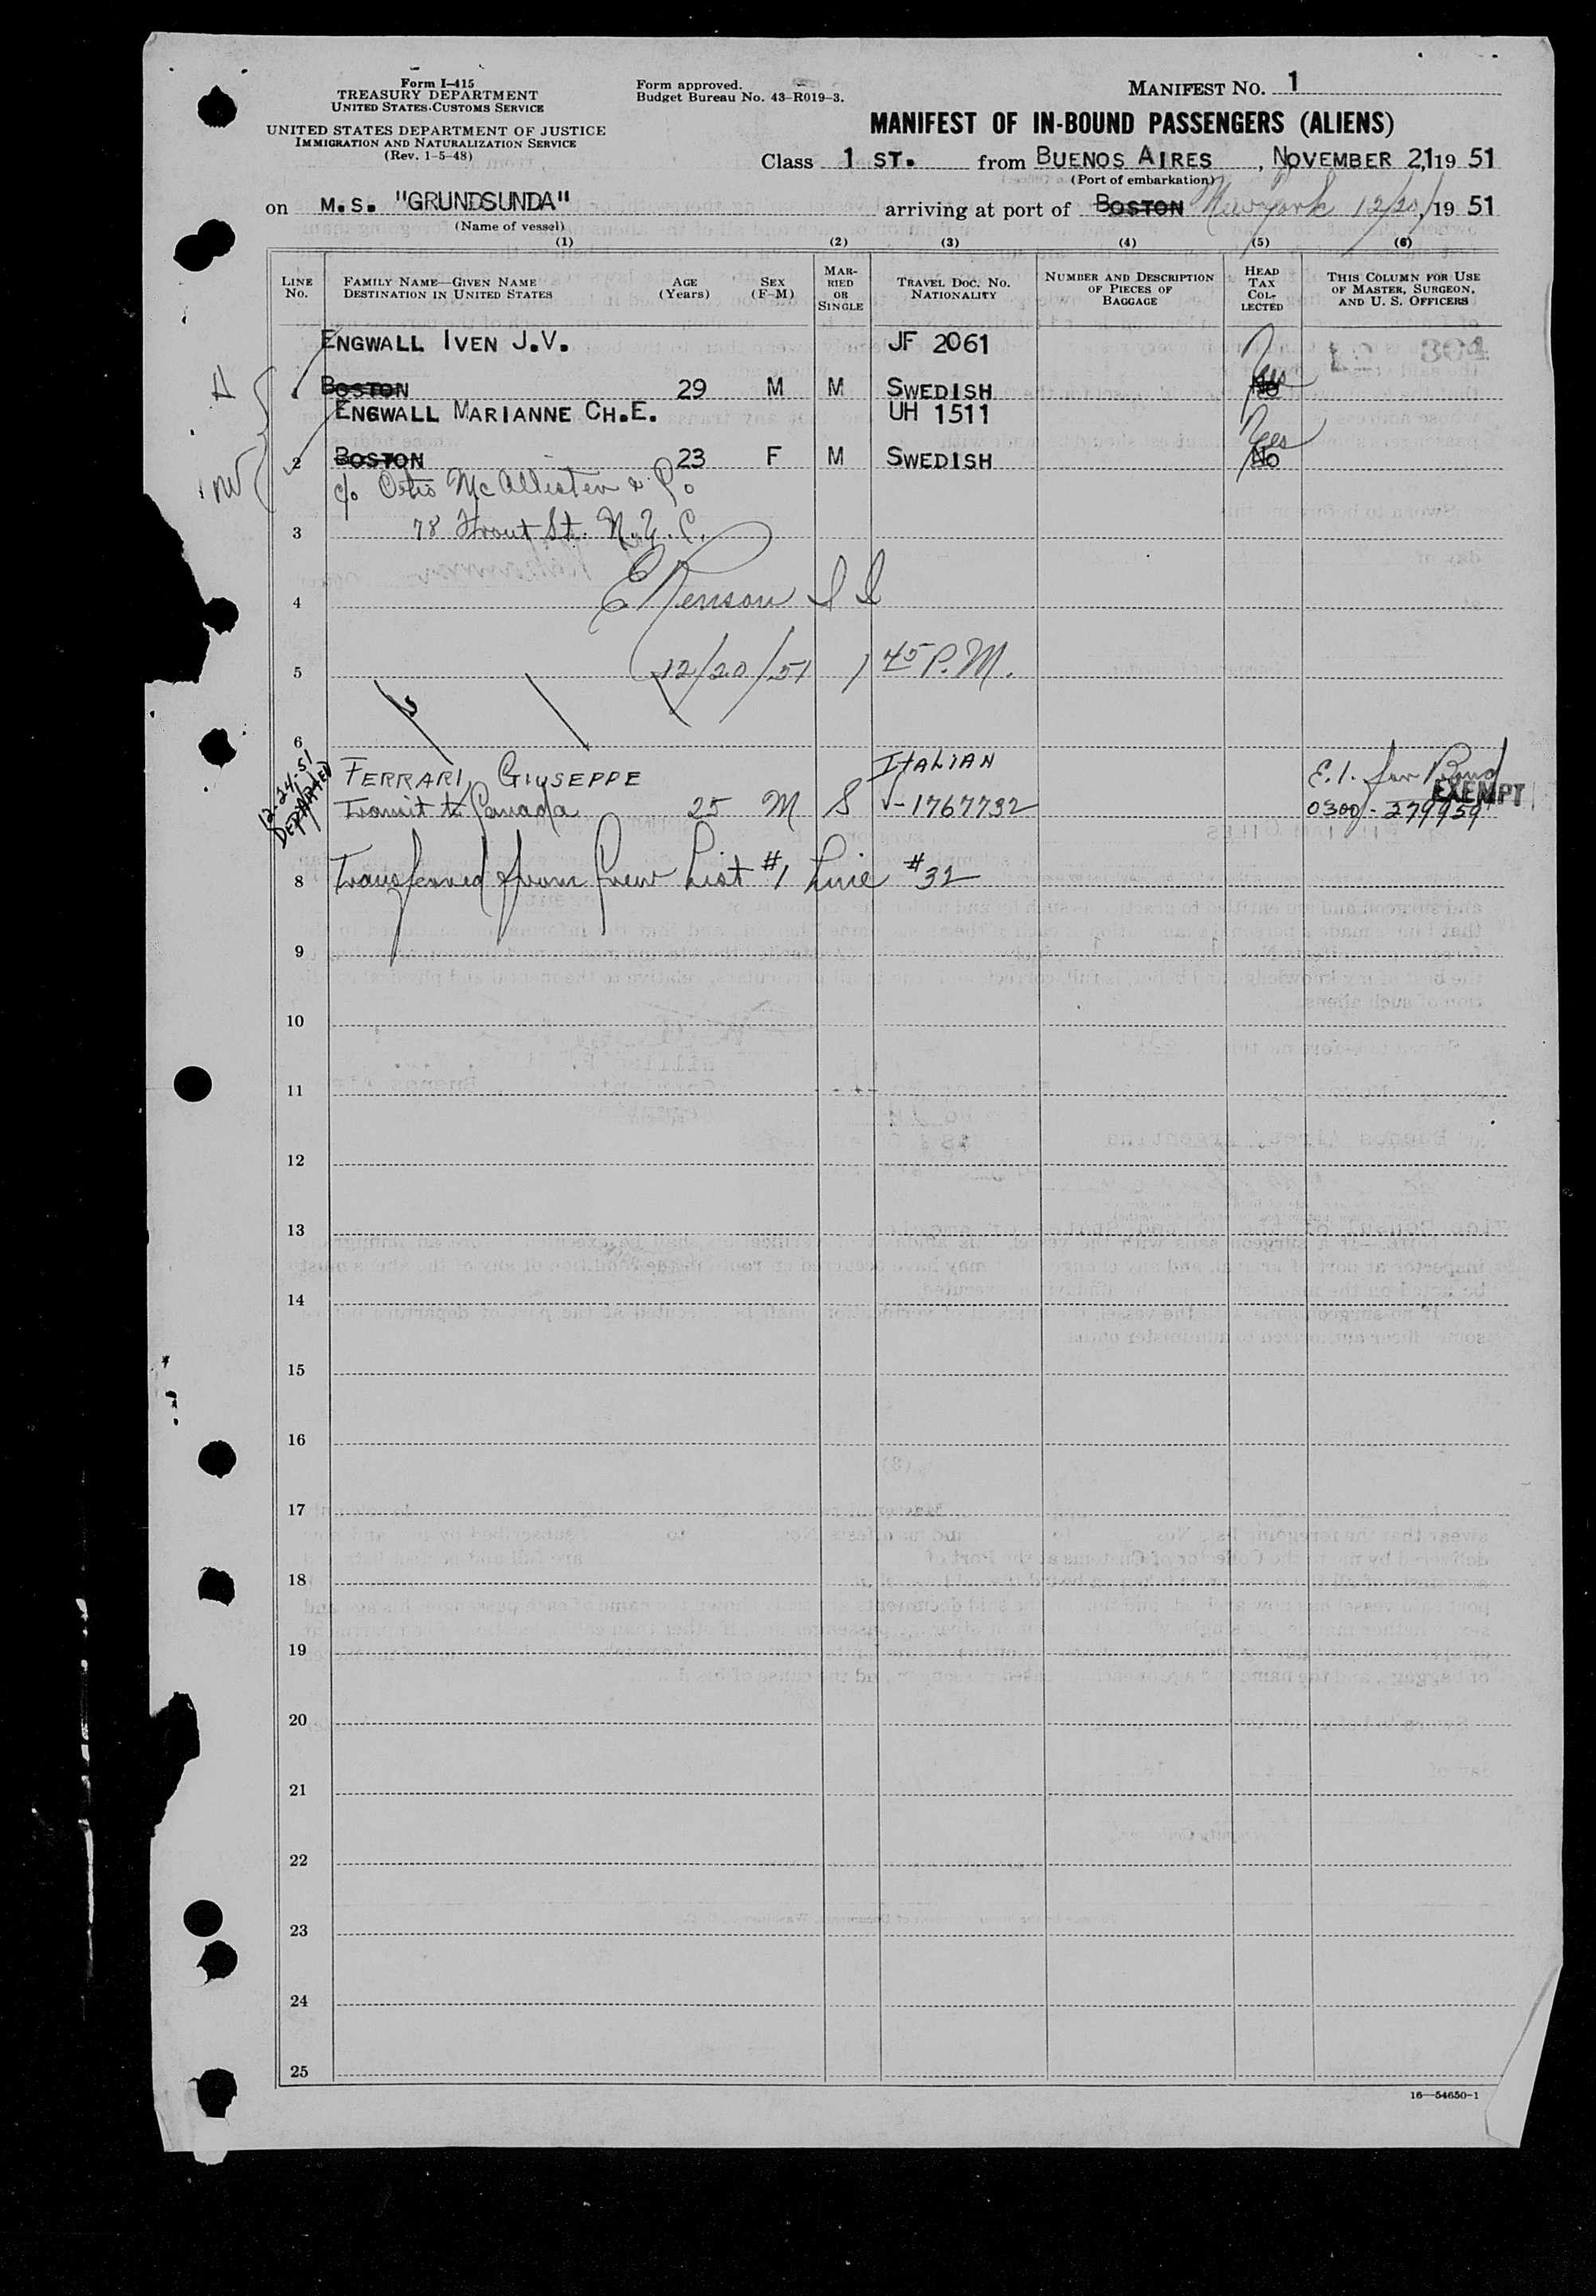 Form I-415
TREASURY DEPARTMENT
UNITED STATES CUSTOMS SERVICE
UNITED STATES DEPARTMENT OF JUSTICE
IMMIGRATION AND NATURALIZATION SERVICE
(Rev. 1-5-48)
Form approved.
Budget Bureau No. 43-R019-3.
MANIFEST NO. 1
MANIFEST OF IN-BOUND PASSENGERS (ALIENS)
Class 1 ST. from BUENOS AIRES, NOVEMBER 21, 19 51
(Port of embarkation)
on M.S. "GRUNDSUNDA" arriving at port of BOSTON New York 12/20/, 19 51
(Name of vessel)
(1) (2) (3) (4) (5) (6)
LINE No. FAMILY NAME—GIVEN NAME DESTINATION IN UNITED STATES AGE (Years) SEX (F-M) MARRIED OR SINGLE TRAVEL DOC. NO. NATIONALITY NUMBER AND DESCRIPTION OF PIECES OF BAGGAGE HEAD TAX COLLECTED THIS COLUMN FOR USE OF MASTER, SURGEON, AND U. S. OFFICERS
ENGWALL IVEN J.V. JF 2061 Yes
1 BOSTON 29 M M SWEDISH No
ENGWALL MARIANNE CH.E. UH 1511 Yes
2 BOSTON 23 F M SWEDISH No
c/o Otis McAllister & Co
3 78 Front St. N.Y.C.
4
5 12/20/51 1 45 P.M.
6
FERRARI GIUSEPPE ITALIAN E.I. for Bond
12-24-51 DEPARTED Transit to Canada 25 M S V-1767732 0300-279959 EXEMPT
8 Transferred from Crew List #1 Line #32
9
10
11
12
13
14
15
16
17
18
19
20
21
22
23
24
25
16—54650-1